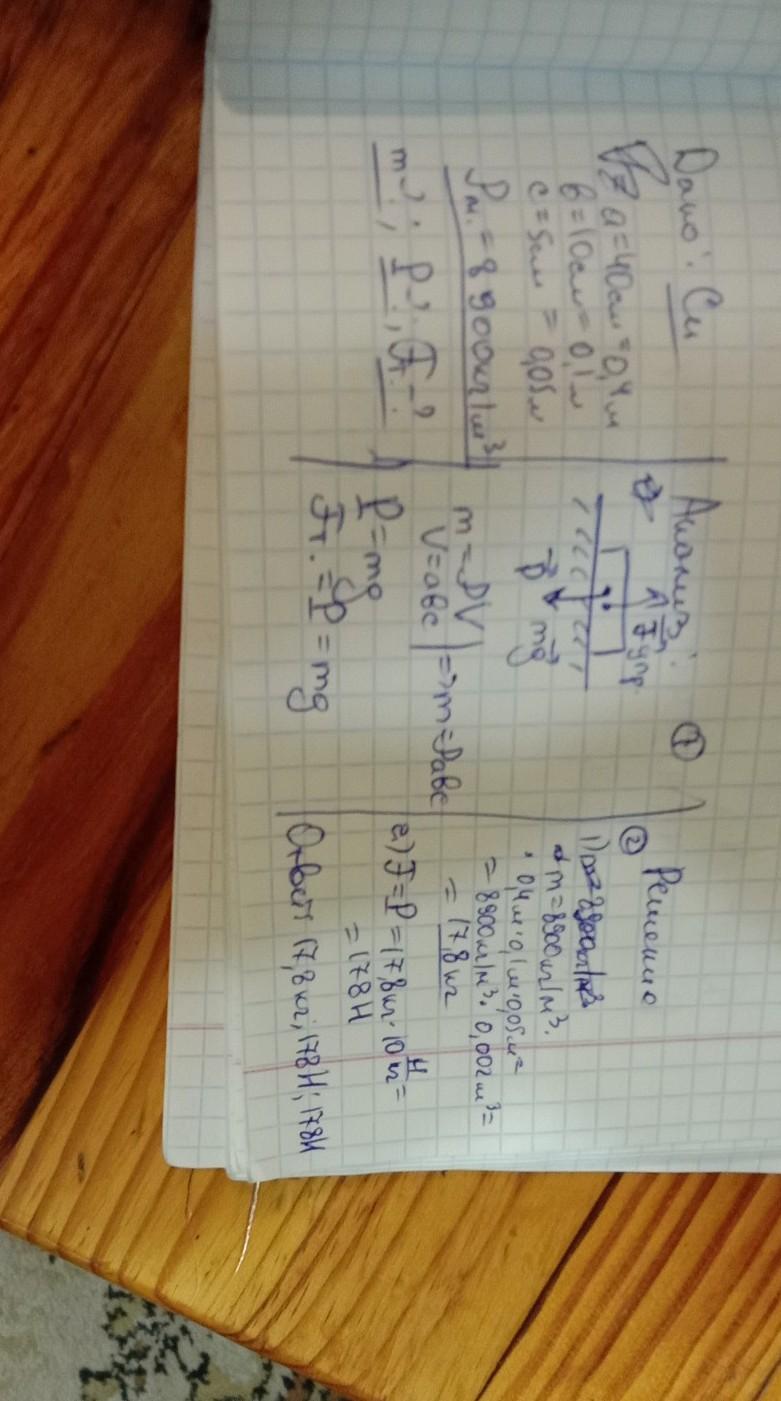 Дано: Си
a=40см=0,4м
b=10см=0,1м
c=5см=0,05м
ρм.=8900кг/м³
m-?, P-?, Fт.-?
Анализ: ①
Fупр.
P mg
m=ρV
V=abc |=>m=ρabc
P=mg
Fт.=P=mg
② Решение
m=8900кг/м³·
·0,4м·0,1м·0,05м=
=8900кг/м³·0,002м³=
=17,8кг
2) F=P=17,8кг·10Н/кг=
=178Н
Ответ: 17,8кг; 178Н; 178Н